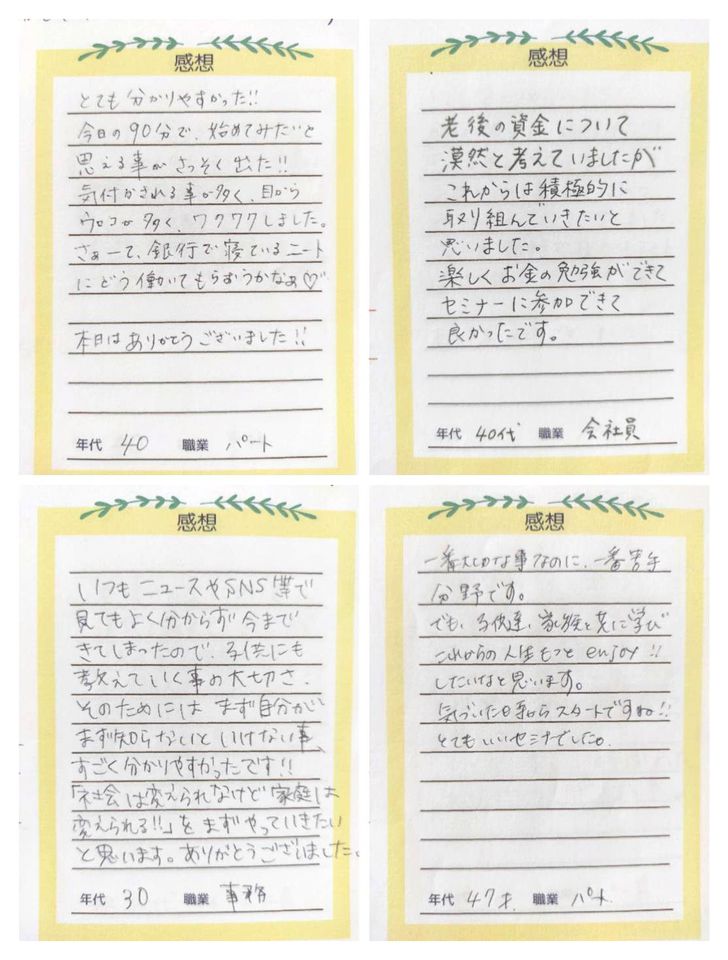 感想
とても分かりやすかった!!
今日の90分で、始めてみたいと
思える事がさっそく出た!!
気付かされる事が多く、目から
ウロコが多く、ワクワクしました。
さぁーて、銀行で寝ているニート
にどう働いてもらおうかなぁ♡
本日はありがとうございました!!
年代 40 職業 パート
感想
老後の資金について
漠然と考えていましたが
これからは積極的に
取り組んでいきたいと
思いました。
楽しくお金の勉強ができて
セミナーに参加できて
良かったです。
年代 40代 職業 会社員
感想
いつもニュースやSNS等で
見てもよく分からず今まで
きてしまったので、子供にも
教えていく事の大切さ、
そのためにはまず自分が
まず知らないといけない事、
すごく分かりやすかったです!!
「社会は変えられなけど家庭は
変えられる!!」をまずやっていきたい
と思います。ありがとうございました。
年代 30 職業 事務
感想
一番大切な事なのに、一番苦手
分野です。
でも、子供達、家族と共に学び
これからの人生もっとenjoy!!
したいなと思います。
気づいた日からスタートですね!!
とてもいいセミナでした。
年代 47才. 職業 パート